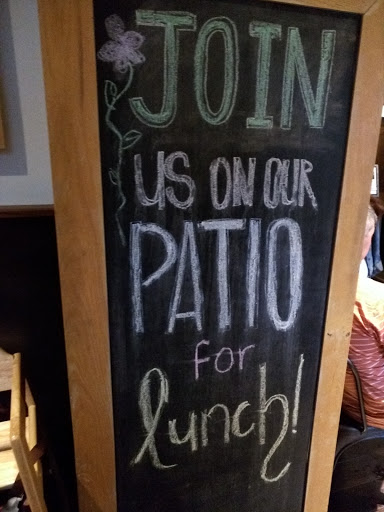 JOIN
US ON OUR
PATIO
for
lunch!